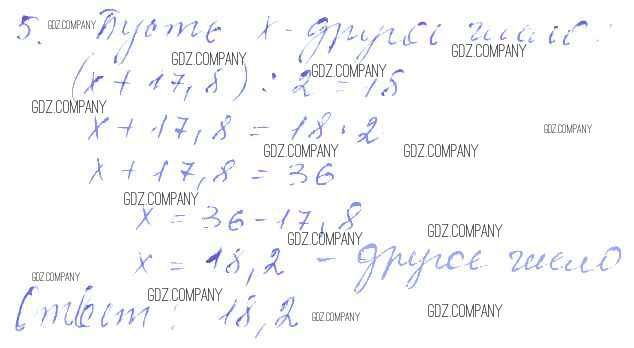 5. GDZ.COMPANY Пусть x - другое число:
GDZ.COMPANY GDZ.COMPANY
(x + 17,8) : 2 = 18
GDZ.COMPANY GDZ.COMPANY
x + 17,8 = 18 · 2
GDZ.COMPANY
GDZ.COMPANY GDZ.COMPANY
x + 17,8 = 36
GDZ.COMPANY
x = 36 - 17,8
GDZ.COMPANY GDZ.COMPANY
x = 18,2 - другое число
GDZ.COMPANY
GDZ.COMPANY
Ответ: 18,2
GDZ.COMPANY GDZ.COMPANY